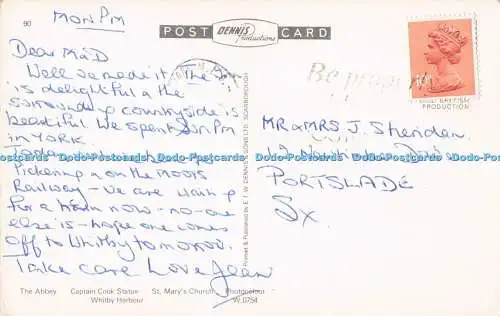 90
MON PM
POST DENNIS Productions CARD
Dear M&D
Well we made it. The
is delightful & the
surrounding countryside is
beautiful We spent Sun Pm
in YORK.
Today
Pickering & on the MOORS
Railway - we are waiting
for a train now - no-one
else is - hope one comes
off to Whitby tomorrow.
Take care Love Jean
The Abbey Captain Cook Statue St. Mary's Church Photocolour
Whitby Harbour W.0754
Printed & Published by E. T. W. DENNIS & SONS LTD. SCARBOROUGH
Be prop
BRITISH
PRODUCTION
MR & MRS J. Sheridan
PORTSLADE
Sx
Wodo-Postcards